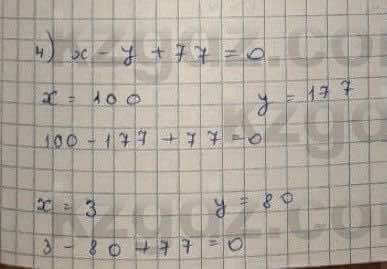 4) x - y + 77 = 0
x = 100 y = 177
100 - 177 + 77 = 0
x = 3 y = 80
3 - 80 + 77 = 0